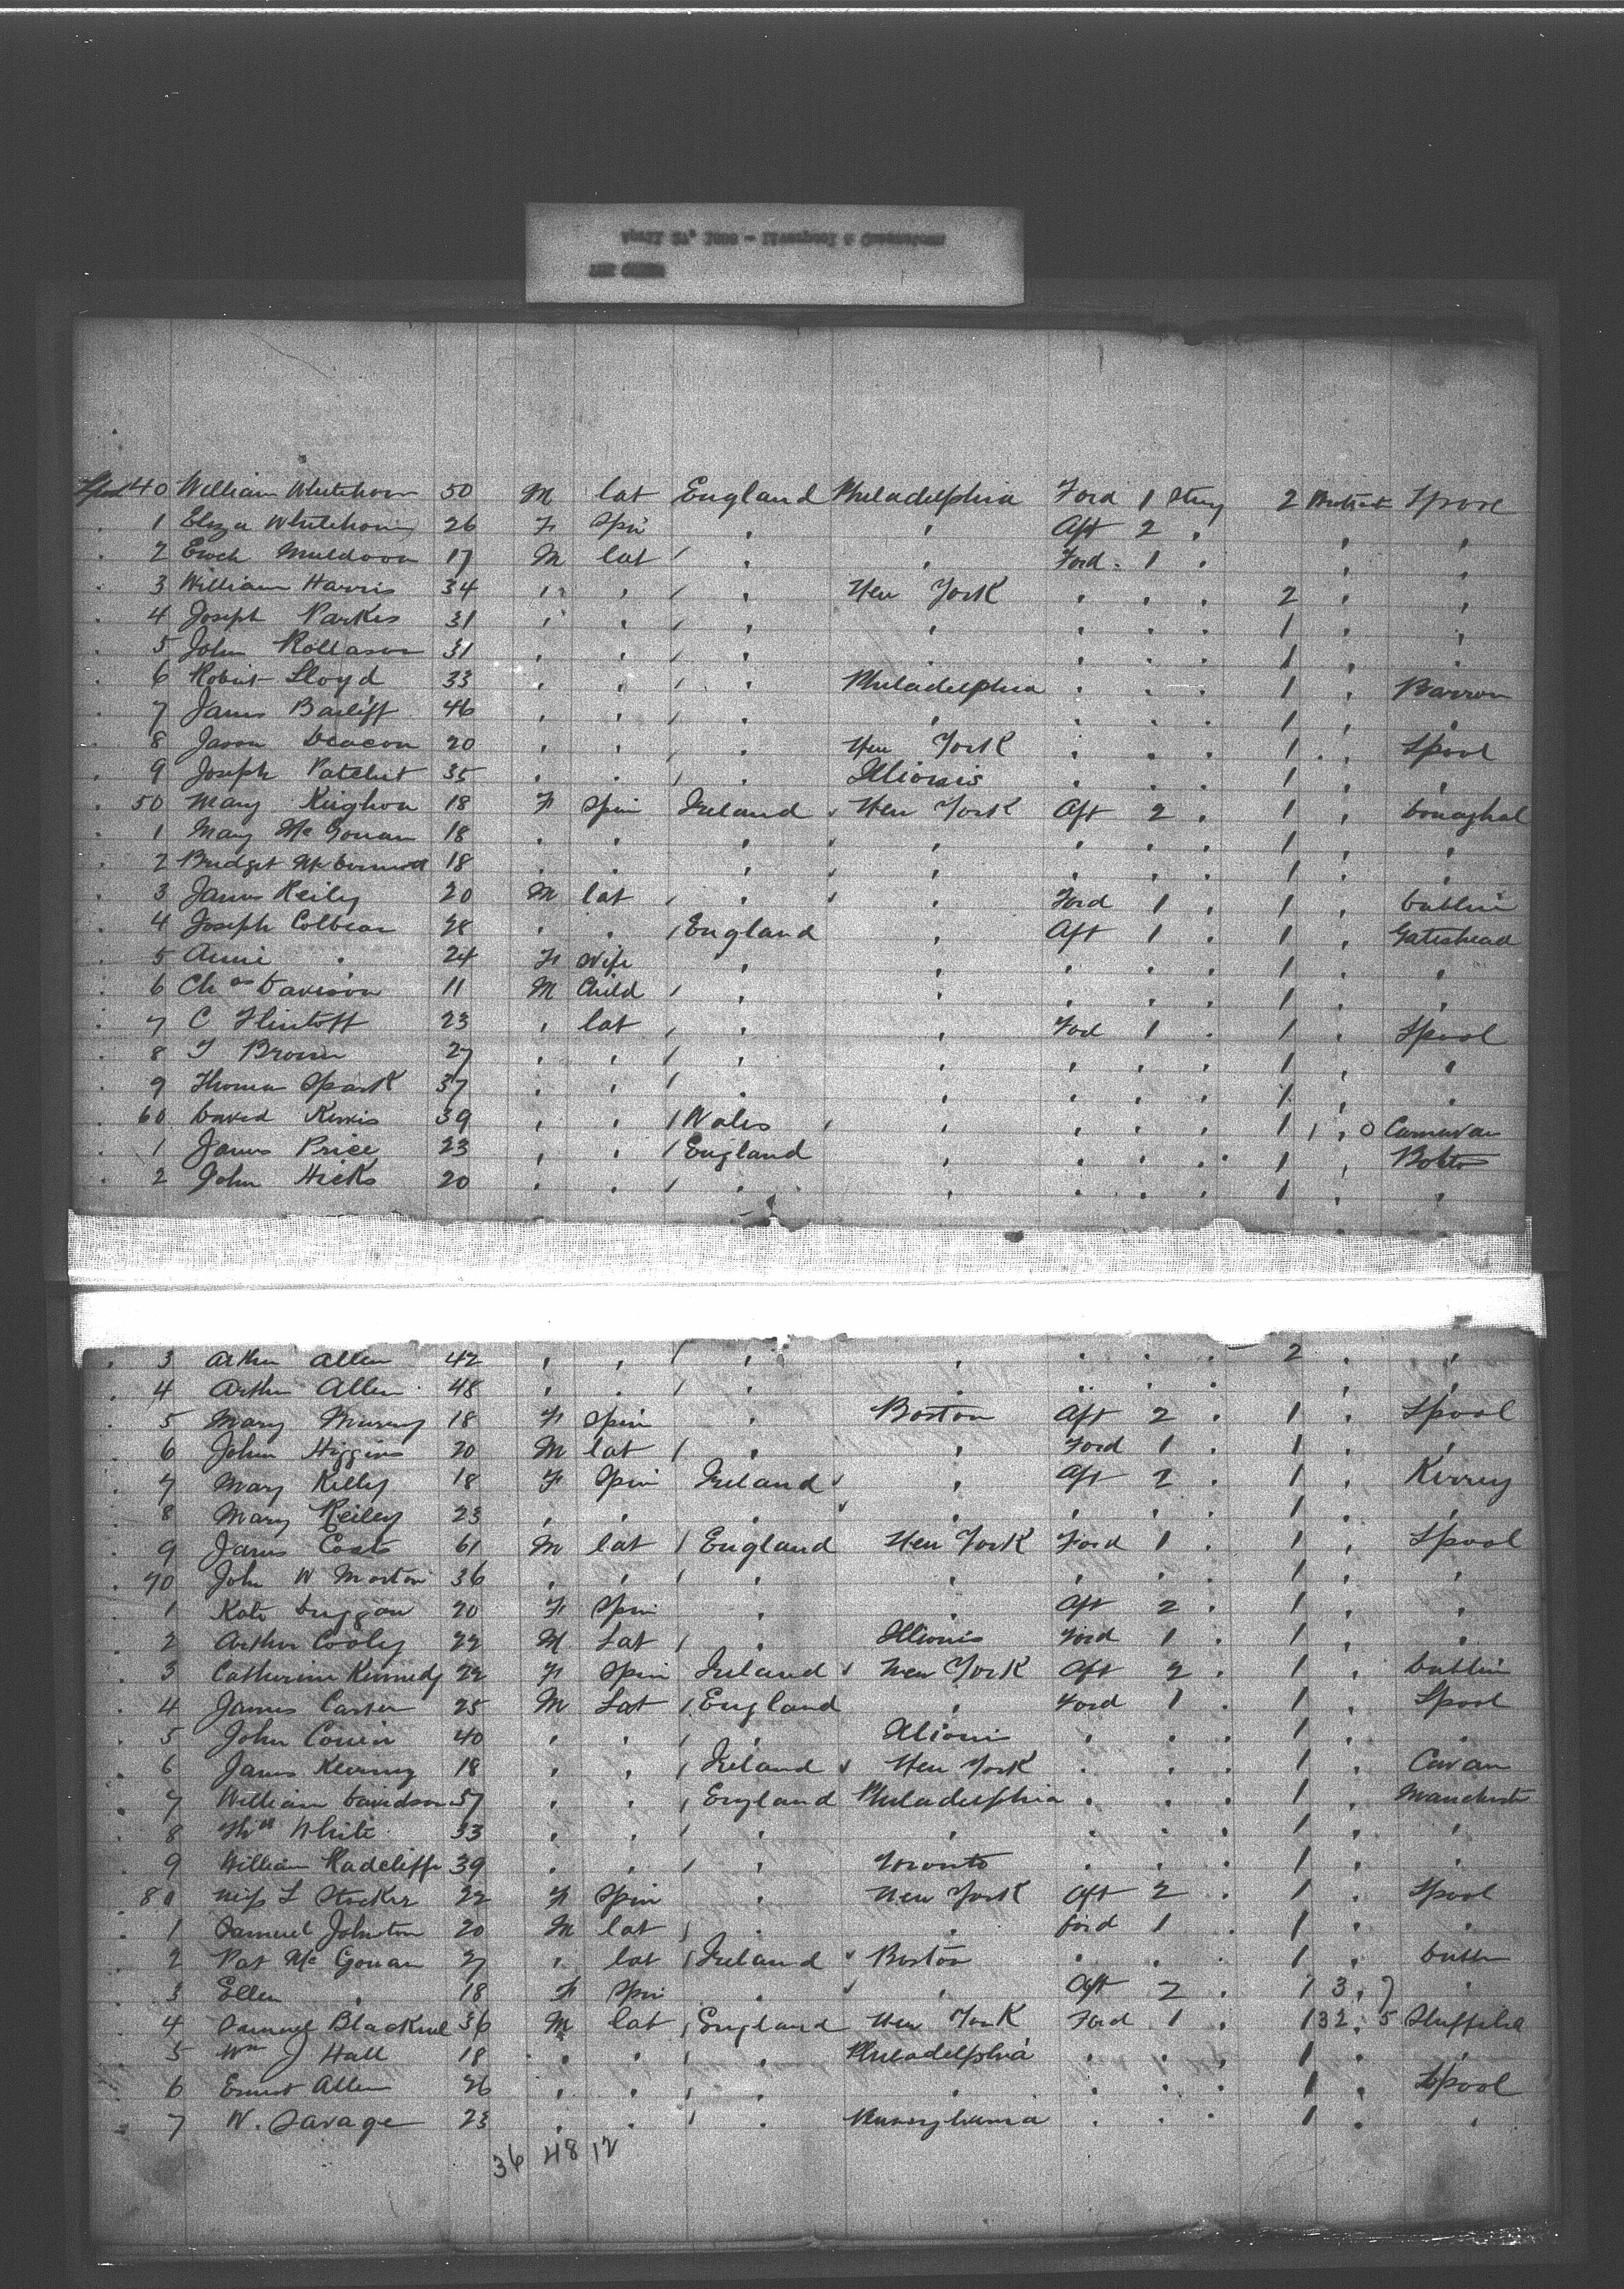 40 William Whitehorn 50 M lat England Philadelphia Ford 1 Strg 2 Lpool
. 1 Eliza Whitehorn 26 F Spin " " Aft 2 " " "
. 2 Enoch Muldoon 17 M lat / " " Ford " 1 " " "
. 3 William Harris 34 " " / " New York " " " 2 " "
. 4 Joseph Parkes 31 " " / " " " " " 1 " "
. 5 John Rollason 31 " " / " " " " " 1 " "
. 6 Robert Lloyd 33 " " / " Philadelphia " " " 1 " Barrow
. 7 James Bailiff 46 " " / " " " " " 1 " "
. 8 Jason Deacon 20 " " / " New York " " " 1 " Lpool
. 9 Joseph Patchet 35 " " / " Illionis " " " 1 " "
. 50 Mary Keighon 18 F Spin Ireland New York Aft 2 " 1 " Donaghal
. 1 Mary Mc Gowan 18 " " " " " " " 1 " "
. 2 Bridget Mc Dermott 18 " " " " " " " 1 " "
. 3 James Reily 20 M lat / " " Ford 1 " 1 " Dublin
. 4 Joseph Colbear 28 " " / England " Aft 1 " 1 " Gateshead
. 5 Annie " 24 F Wife " " " " " 1 " "
. 6 Chas Davison 11 M Child / " " " " " 1 " "
. 7 C Flintoff 23 " lat / " " Ford 1 " 1 " Lpool
. 8 T Brown 27 " " / " " " " " 1 " "
. 9 Thomas Spark 37 " " / " " " " " 1 " "
. 60 David 39 " " / Wales " " " " 1 1 " 0 Carnarvan
. 1 James Price 23 " " / England " " " " 1 " Bolton
. 2 John Hicks 20 " " / " " " " " 1 " "
. 3 Arthur Allen 42 " " / " " " " " 2 " "
. 4 Arthur Allen 48 " " / " " " " " " "
. 5 Mary Murray 18 F Spin " Boston Aft 2 " 1 " Lpool
. 6 John Higgins 20 M lat / " " Ford 1 " 1 " "
. 7 Mary Kelly 18 F Spin Ireland " Aft 2 " 1 " Kerrey
. 8 Mary Reiley 23 " " " " " " " 1 " "
. 9 James Coats 61 M lat / England New York Ford 1 " 1 " Lpool
. 70 John W Morton 36 " " / " " " " " 1 " "
. 1 Kate Duggan 20 F Spin " " Aft 2 " 1 " "
. 2 Arthur Cooley 22 M Lat / " Illionis Ford 1 " 1 " "
. 3 Catherine Kennedy 22 F Spin Ireland New York Aft 2 " 1 " Dublin
. 4 James Carter 25 M Lat / England " Ford 1 " 1 " Lpool
. 5 John 40 " " / " Illionis " " " 1 " "
. 6 James 18 " " / Ireland New York " " " 1 " Cavan
. 7 William Davidson 57 " " / England Philadelphia " " " 1 " Manchester
. 8 White 33 " " / " " " " " 1 " "
. 9 William Radcliffe 39 " " / " Toronto " " " 1 " "
. 80 Miss L Stocker 22 F Spin " New York Aft 2 " 1 " Lpool
. 1 Samuel Johnston 20 M lat / " " Ford 1 " 1 " "
. 2 Pat Mc Gowan 27 " lat / Ireland Boston " " " 1 " Dublin
. 3 Ellen " 18 F Spin " " Aft 2 " 1 3 " 7 "
. 4 Samuel 36 M lat / England New York Ford 1 " 1 32 " 5 Sheffield
. 5 Wm J Hall 18 " " / " Philadelphia " " " 1 " "
. 6 Ernest Allen 26 " " / " " " " " 1 " Lpool
. 7 W. Savage 23 " " / " Pennsylvania " " " 1 " "
36 48 12